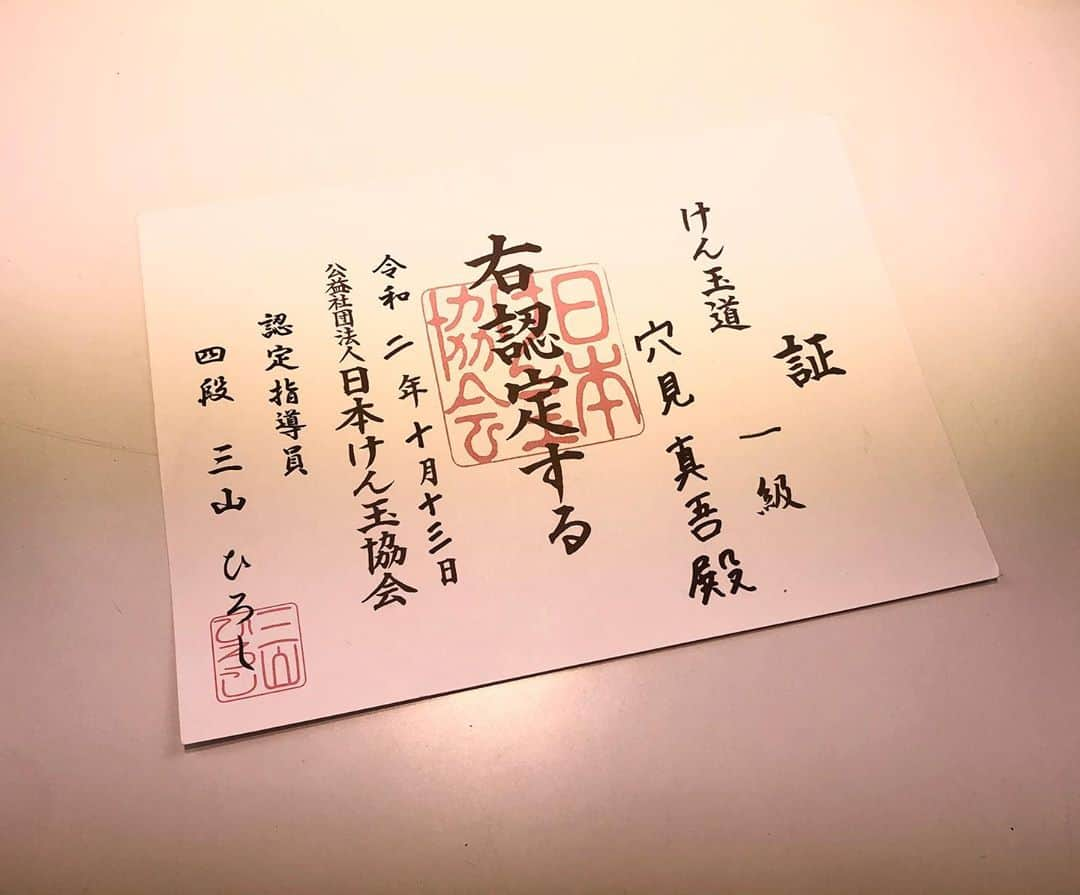 証
けん玉道 一級
穴見 真吾殿
右認定する
令和二年十月十三日
公益社団法人日本けん玉協会
認定指導員
四段 三山 ひろし
日本
けん玉
協会
三山
ひろし